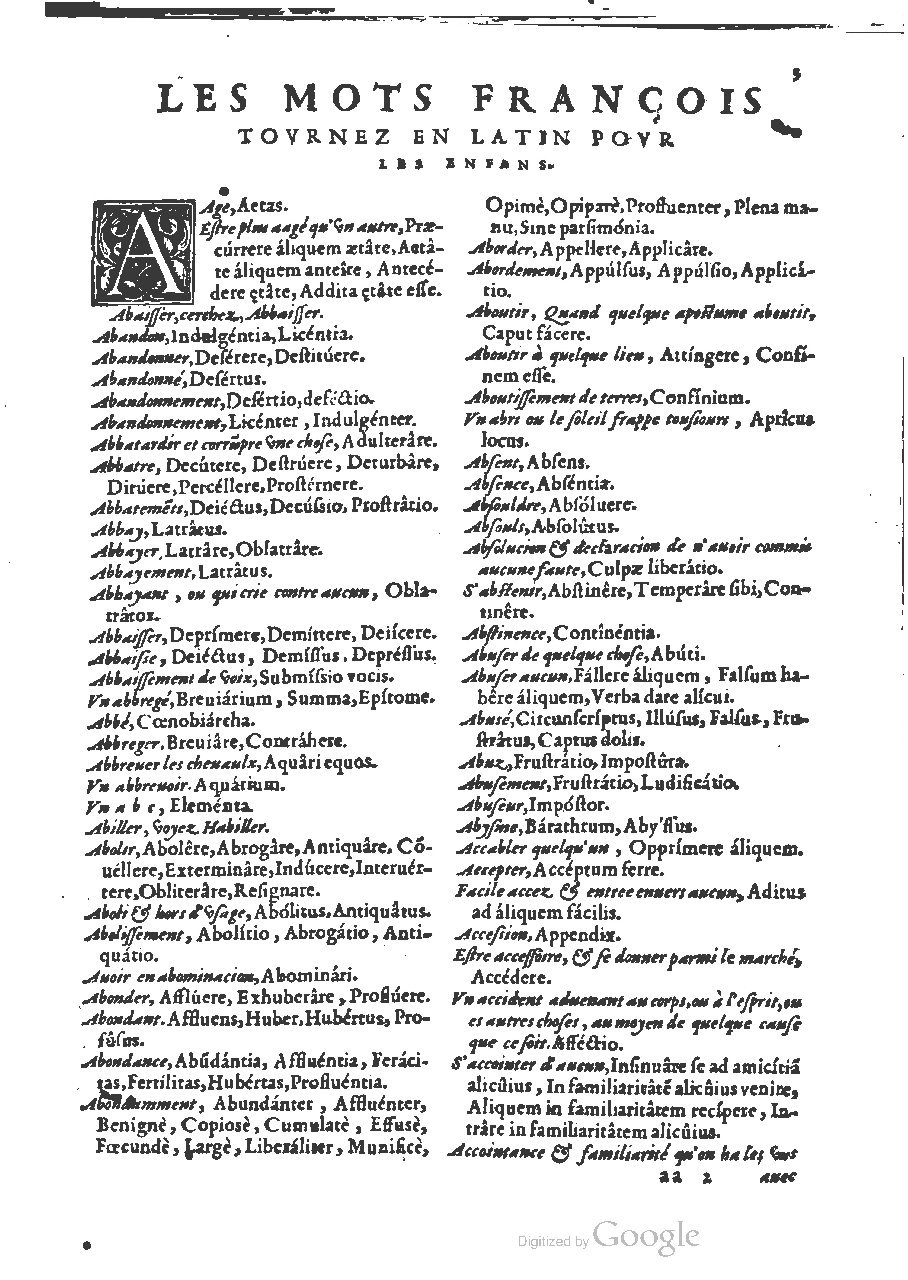 5
LES MOTS FRANÇOIS
TOVRNEZ EN LATIN POVR
LES ENFANS.
Age, Aetas.
Estre plus aagé qu'vn autre, Præ-
cúrrere áliquem ætâte, Aetâ-
te áliquem anteîre, Antecé-
dere ętâte, Addita ętâte esse.
Abaisser, cerchez, Abbaisser.
Abandon, Indulgéntia, Licéntia.
Abandonner, Desérere, Destitúere.
Abandonné, Desértus.
Abandonnement, Desértio, deféctio.
Abandonnement, Licénter, Indulgénter.
Abbatardir et corrũpre vne chose, Adulterâre.
Abbatre, Decútere, Destrúere, Deturbâre,
Dirúere, Percéllere, Prostérnere.
Abbatemẽts, Deiéctus, Decússio, Prostrâtio.
Abbay, Latrâtus.
Abbayer, Latrâre, Oblatrâre.
Abbayement, Latrâtus.
Abbayant, ou qui crie contre aucun, Obla-
trâtor.
Abbaisser, Deprímere, Demíttere, Deiícere.
Abbaissé, Deiéctus, Demíssus, Depréssus.
Abbaissement de voix, Submíssio vocis.
Vn abbregé, Breuiárium, Summa, Epítome.
Abbé, Cœnobiárcha.
Abbreger, Breuiâre, Contráhere.
Abbreuer les cheuaulx, Aquâri equos.
Vn abbreuoir. Aquárium.
Vn a b c, Eleménta
Abiller, voyez Habiller.
Abolir, Abolêre, Abrogâre, Antiquâre, Cõ-
uéllere, Exterminâre, Indúcere, Interuér-
tere, Obliterâre, Resignare.
Aboli & hors d'vsage, Abólitus, Antiquâtus.
Abolissement, Abolítio, Abrogátio, Anti-
quátio.
Auoir en abominacion, Abominári.
Abonder, Afflúere, Exhuberâre, Proflúere.
Abondant. Affluens, Huber, Hubértus, Pro-
fûsus.
Abondance, Abũdántia, Affluéntia, Feráci-
tas, Fertilitas, Hubértas, Profluéntia.
Abondamment, Abundánter, Affluénter,
Benignè, Copiosè, Cumulatè, Effusè,
Fœcundè, Largè, Liberáliter, Munificè,
Opimè, Opiparè, Profluenter, Plena ma-
nu, Sine parsimónia.
Aborder, Appellere, Applicâre.
Abordement, Appúlsus, Appúlsio, Applicá-
tio.
Aboutir, Quand quelque apostume aboutit,
Caput fácere.
Aboutir à quelque lieu, Attíngere, Confí-
nem esse.
Aboutissement de terres, Confínium.
Vn abri ou le soleil frappe tousiours, Aprícus
locus.
Absent, Absens.
Absence, Abséntia.
Absouldre, Absóluere.
Absouls, Absolûtus.
Absolucion & declaracion de n'auoir commis
aucune faute, Culpæ liberátio.
S'abstenir, Abstinêre, Temperâre sibi, Con-
tinêre.
Abstinence, Continéntia.
Abuser de quelque chose, Abúti.
Abuser aucun, Fállere áliquem, Falsum ha-
bêre áliquem, Verba dare alícui.
Abusé, Circunscríptus, Illúsus, Falsus, Fru-
strâtus, Captus dolis.
Abuz, Frustrátio, Impostûra.
Abusement, Frustrátio, Ludificátio.
Abuseur, Impóstor.
Abysme, Bárathrum, Aby'ssus.
Accabler quelqu'un, Opprímere áliquem.
Accepter, Accéptum ferre.
Facile accez & entree enuers aucun, Aditus
ad áliquem fácilis.
Accession, Appendix.
Estre accessoire, & se donner parmi le marché,
Accédere.
Vn accident aduenant au corps, ou à l'esprit, ou
es autres choses, au moyen de quelque cause
que ce soit. Afféctio.
S'accointer d'aucun, Insinuâre se ad amicítiã
alicûius, In familiaritâtẽ alicûius venire,
Aliquem in familiaritâtem recípere, In-
trâre in familiaritâtem alicûius.
Accointance & familiarité qu'on ha les vns
aa 2 auec
Digitized by Google